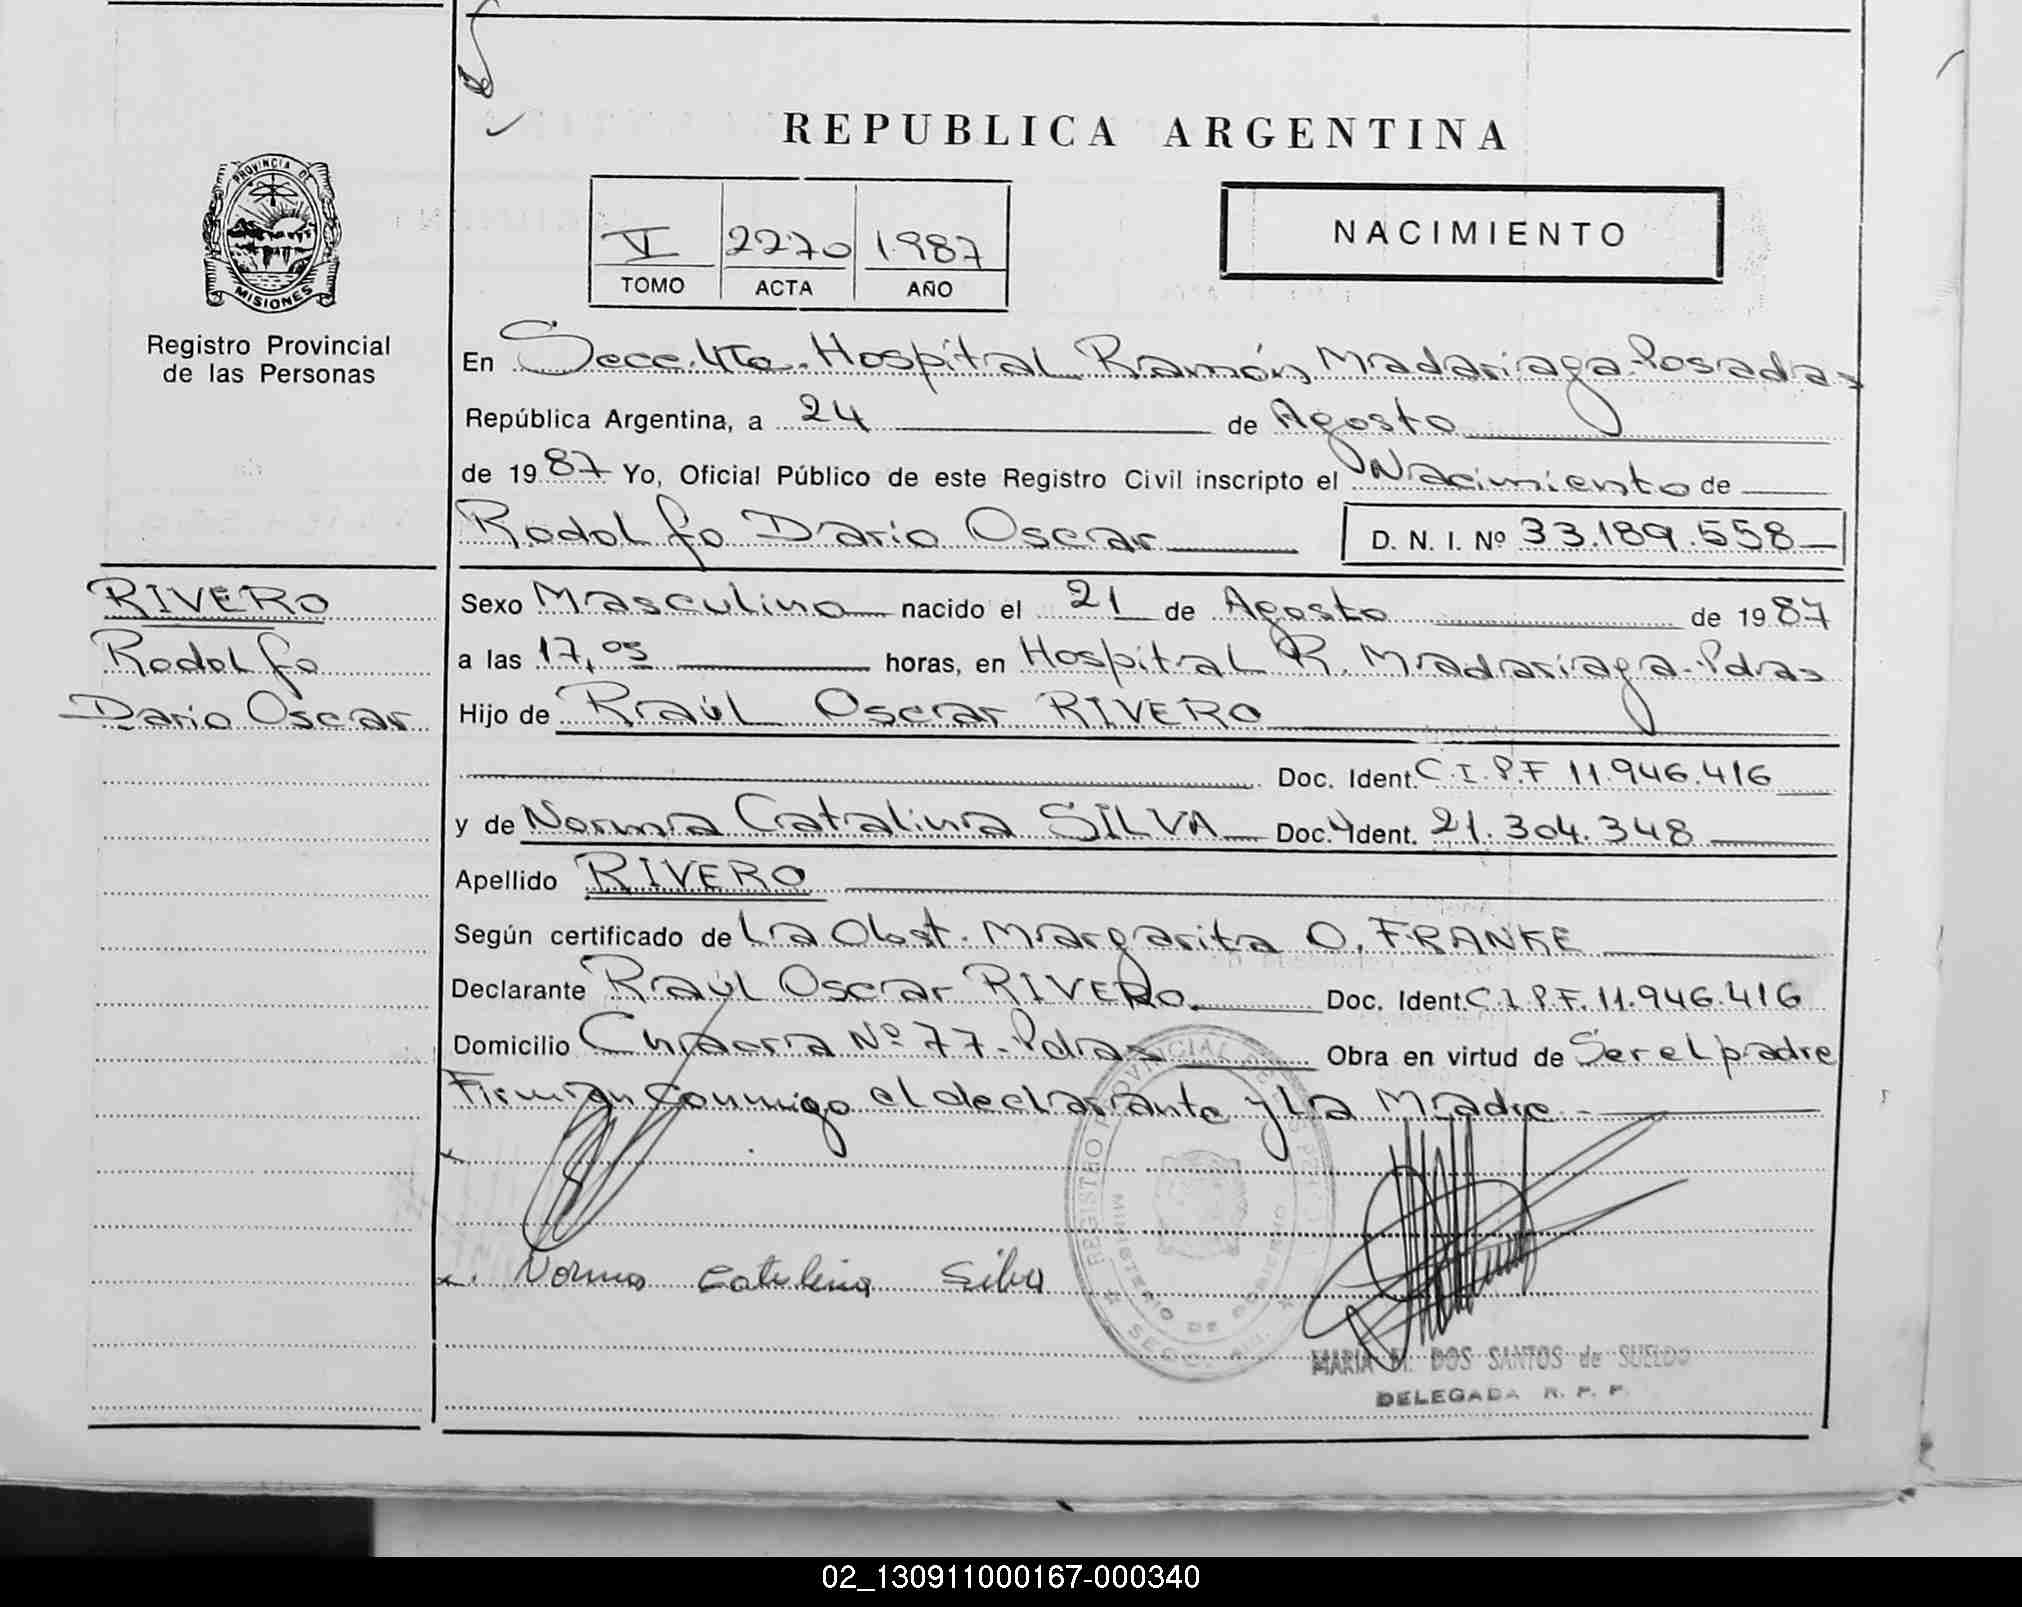 REPUBLICA ARGENTINA
PROVINCIA DE
MISIONES
Registro Provincial
de las Personas
V 2270 1987
TOMO ACTA AÑO
NACIMIENTO
En Secc. 4ta. Hospital Ramón Madariaga-Posadas
República Argentina, a 24 de Agosto
de 1987 Yo, Oficial Público de este Registro Civil inscripto el Nacimiento de
Rodolfo Dario Oscar D. N. I. Nº 33.189.558
RIVERO
Rodolfo
Dario Oscar
Sexo Masculino nacido el 21 de Agosto de 1987
a las 17,05 horas, en Hospital R. Madariaga-Pdas
Hijo de Raúl Oscar RIVERO
Doc. Ident. C.I.P.F 11.946.416
y de Norma Catalina SILVA Doc. Ident. 21.304.348
Apellido RIVERO
Según certificado de La Obst. Margarita O. FRANKE
Declarante Raúl Oscar RIVERO. Doc. Ident. C.I.P.F. 11.946.416
Domicilio Chacra Nº 77-Pdas Obra en virtud de Ser el padre
Firman conmigo el declarante y La Madre
Norma Catalina Silva
REGISTRO PROVINCIAL DE
MINISTERIO DE GOBIERNO
MARIA M. DOS SANTOS de SUELDO
DELEGADA R. P. P.
02_130911000167-000340